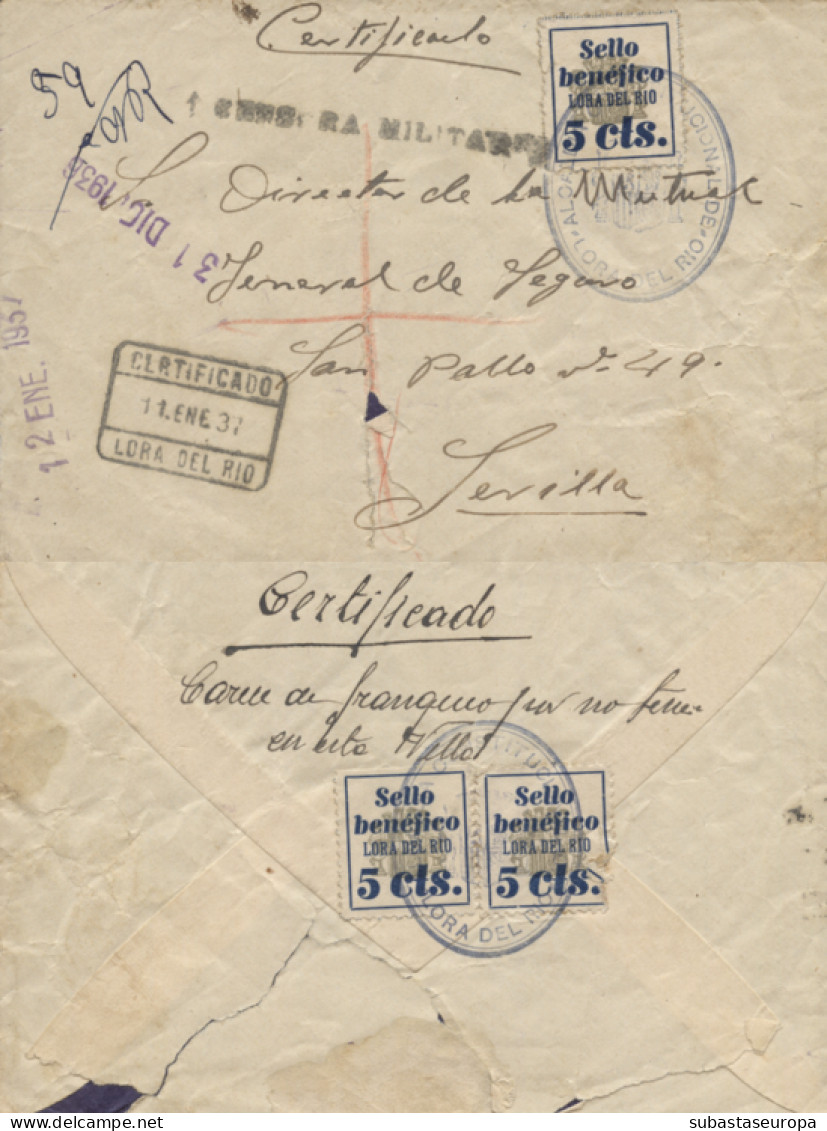 Certificado
59
Sello
benéfico
LORA DEL RIO
5 cts.
CENSURA MILITAR
31 DIC. 193
Sr. Director de la Mutual
General de Seguro
San Pablo nº 49.
Sevilla
LORA DEL RIO
12 ENE. 1937
CERTIFICADO
11. ENE 37
LORA DEL RIO
Certificado
Carece de franqueo por no tener
en esta Sellos
Sello
benéfico
LORA DEL RIO
5 cts.
Sello
benéfico
LORA DEL RIO
5 cts.
LORA DEL RIO
subastaseuropa